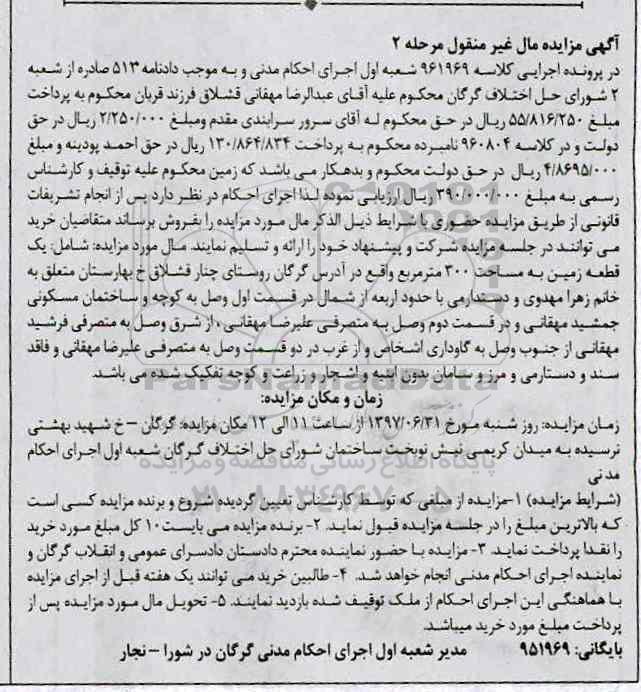 آگهی مزایده مال غیر منقول مرحله ۲
در پرونده اجرایی کلاسه ۹۶۱۹۶۹ شعبه اول اجرای احکام مدنی و به موجب دادنامه ۵۱۳ صادره از شعبه
۲ شورای حل اختلاف گرگان محکوم علیه آقای عبدالرضا مهقانی قشلاق فرزند قربان محکوم به پرداخت
مبلغ ۵۵/۸۱۶/۲۵۰ ریال در حق محکوم له آقای سرور سرابندی مقدم ومبلغ ۲/۲۵۰/۰۰۰ ریال در حق
دولت و در کلاسه ۹۶۰۸۰۴ نامبرده محکوم به پرداخت ۱۳۰/۸۶۴/۸۳۴ ریال در حق احمد پودینه و مبلغ
۴/۸۶۹۵/۰۰۰ ریال در حق دولت محکوم و بدهکار می باشد که زمین محکوم علیه توقیف و کارشناس
رسمی به مبلغ ۳۹۰/۰۰۰/۰۰۰ ریال ارزیابی نموده لذا اجرای احکام در نظر دارد پس از انجام تشریفات
قانونی از طریق مزایده حضوری با شرایط ذیل الذکر مال مورد مزایده را بفروش برساند متقاضیان خرید
می توانند در جلسه مزایده شرکت و پیشنهاد خود را ارائه و تسلیم نمایند. مال مورد مزایده: شامل: یک
قطعه زمین به مساحت ۳۰۰ مترمربع واقع در آدرس گرگان روستای چنار قشلاق خ بهارستان متعلق به
خانم زهرا مهدوی و دستدارمی با حدود اربعه از شمال در قسمت اول وصل به کوچه و ساختمان مسکونی
جمشید مهقانی و در قسمت دوم وصل به متصرفی علیرضا مهقانی ، از شرق وصل به متصرفی فرشید
مهقانی از جنوب وصل به گاوداری اشخاص و از غرب در دو قسمت وصل به متصرفی علیرضا مهقانی و فاقد
سند و دستارمی و مرز و سامان بدون ابنیه و اشجار و زراعت و کوچه تفکیک شده می باشد.
زمان و مکان مزایده:
زمان مزایده: روز شنبه مورخ ۱۳۹۷/۰۶/۳۱ از ساعت ۱۱ الی ۱۲ مکان مزایده: گرگان – خ شهید بهشتی
نرسیده به میدان کریمی نبش نوبخت ساختمان شورای حل اختلاف گرگان شعبه اول اجرای احکام
مدنی
(شرایط مزایده) ۱-مزایده از مبلغی که توسط کارشناس تعیین گردیده شروع و برنده مزایده کسی است
که بالاترین مبلغ را در جلسه مزایده قبول نماید. ۲- برنده مزایده می بایست ۱۰ کل مبلغ مورد خرید
را نقدا پرداخت نماید. ۳- مزایده با حضور نماینده محترم دادستان دادسرای عمومی و انقلاب گرگان و
نماینده اجرای احکام مدنی انجام خواهد شد. ۴- طالبین خرید می توانند یک هفته قبل از اجرای مزایده
با هماهنگی این اجرای احکام از ملک توقیف شده بازدید نمایند. ۵- تحویل مال مورد مزایده پس از
پرداخت مبلغ مورد خرید میباشد.
بایگانی: ۹۵۱۹۶۹ مدیر شعبه اول اجرای احکام مدنی گرگان در شورا – نجار
ParsNamadData
پایگاه اطلاع رسانی مناقصه و مزایده